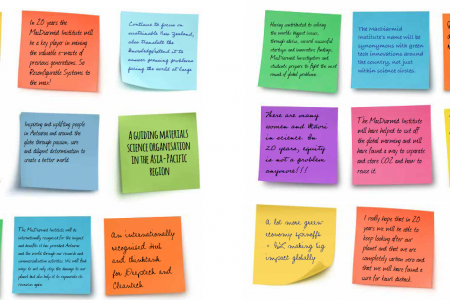 In 20 years the
MacDiarmid Institute will
be a key player in moving
the valuable
previous generations. So
Reconfigurable Systems to
the max!
Continue to focus on
sustainable New Zealand,
also translate the
knowledge/tool it to
answer pressing problems
facing the world at large
Inspiring and uplifting people
in Aotearoa and around the
globe through passion, care
and diligent determination to
create a better world.
A GUIDING MATERIALS
SCIENCE ORGANISATION
IN THE ASIA-PACIFIC
REGION
The MacDiarmid Institute will be
internationally recognised for the impact
and benefits of
and the world through our research and
commercialisation activities. We will find
ways to not only stop the damage to our
planet but also help it to regenerate its
resources again
An internationally
recognised Hub
and thinktank
for Deeptech and
Cleantech
Having contributed to solving
the worlds biggest issues,
through advice, several successful
startups and innovative findings,
MacDiarmid Investigators and
students prepare to fight the next
round of global problems.
The macdiarmid
institute's name will be
synonymous with green
tech innovations around
the country, not just
within science circles.
There are many
women and Māori
in science. In
20 years, equity
is not a problem
anymore!!!
The MacDiarmid Institute will
have helped to cut off
the global warming and will
have found a way to separate
and store CO2 and how to
reuse it.
A lot more green
economy spinoffs
- NZ making big
impact globally
I really hope that in 20
years we will be able to
keep looking after our
planet and that we are
completely carbon zero and
that we will have found a
cure for